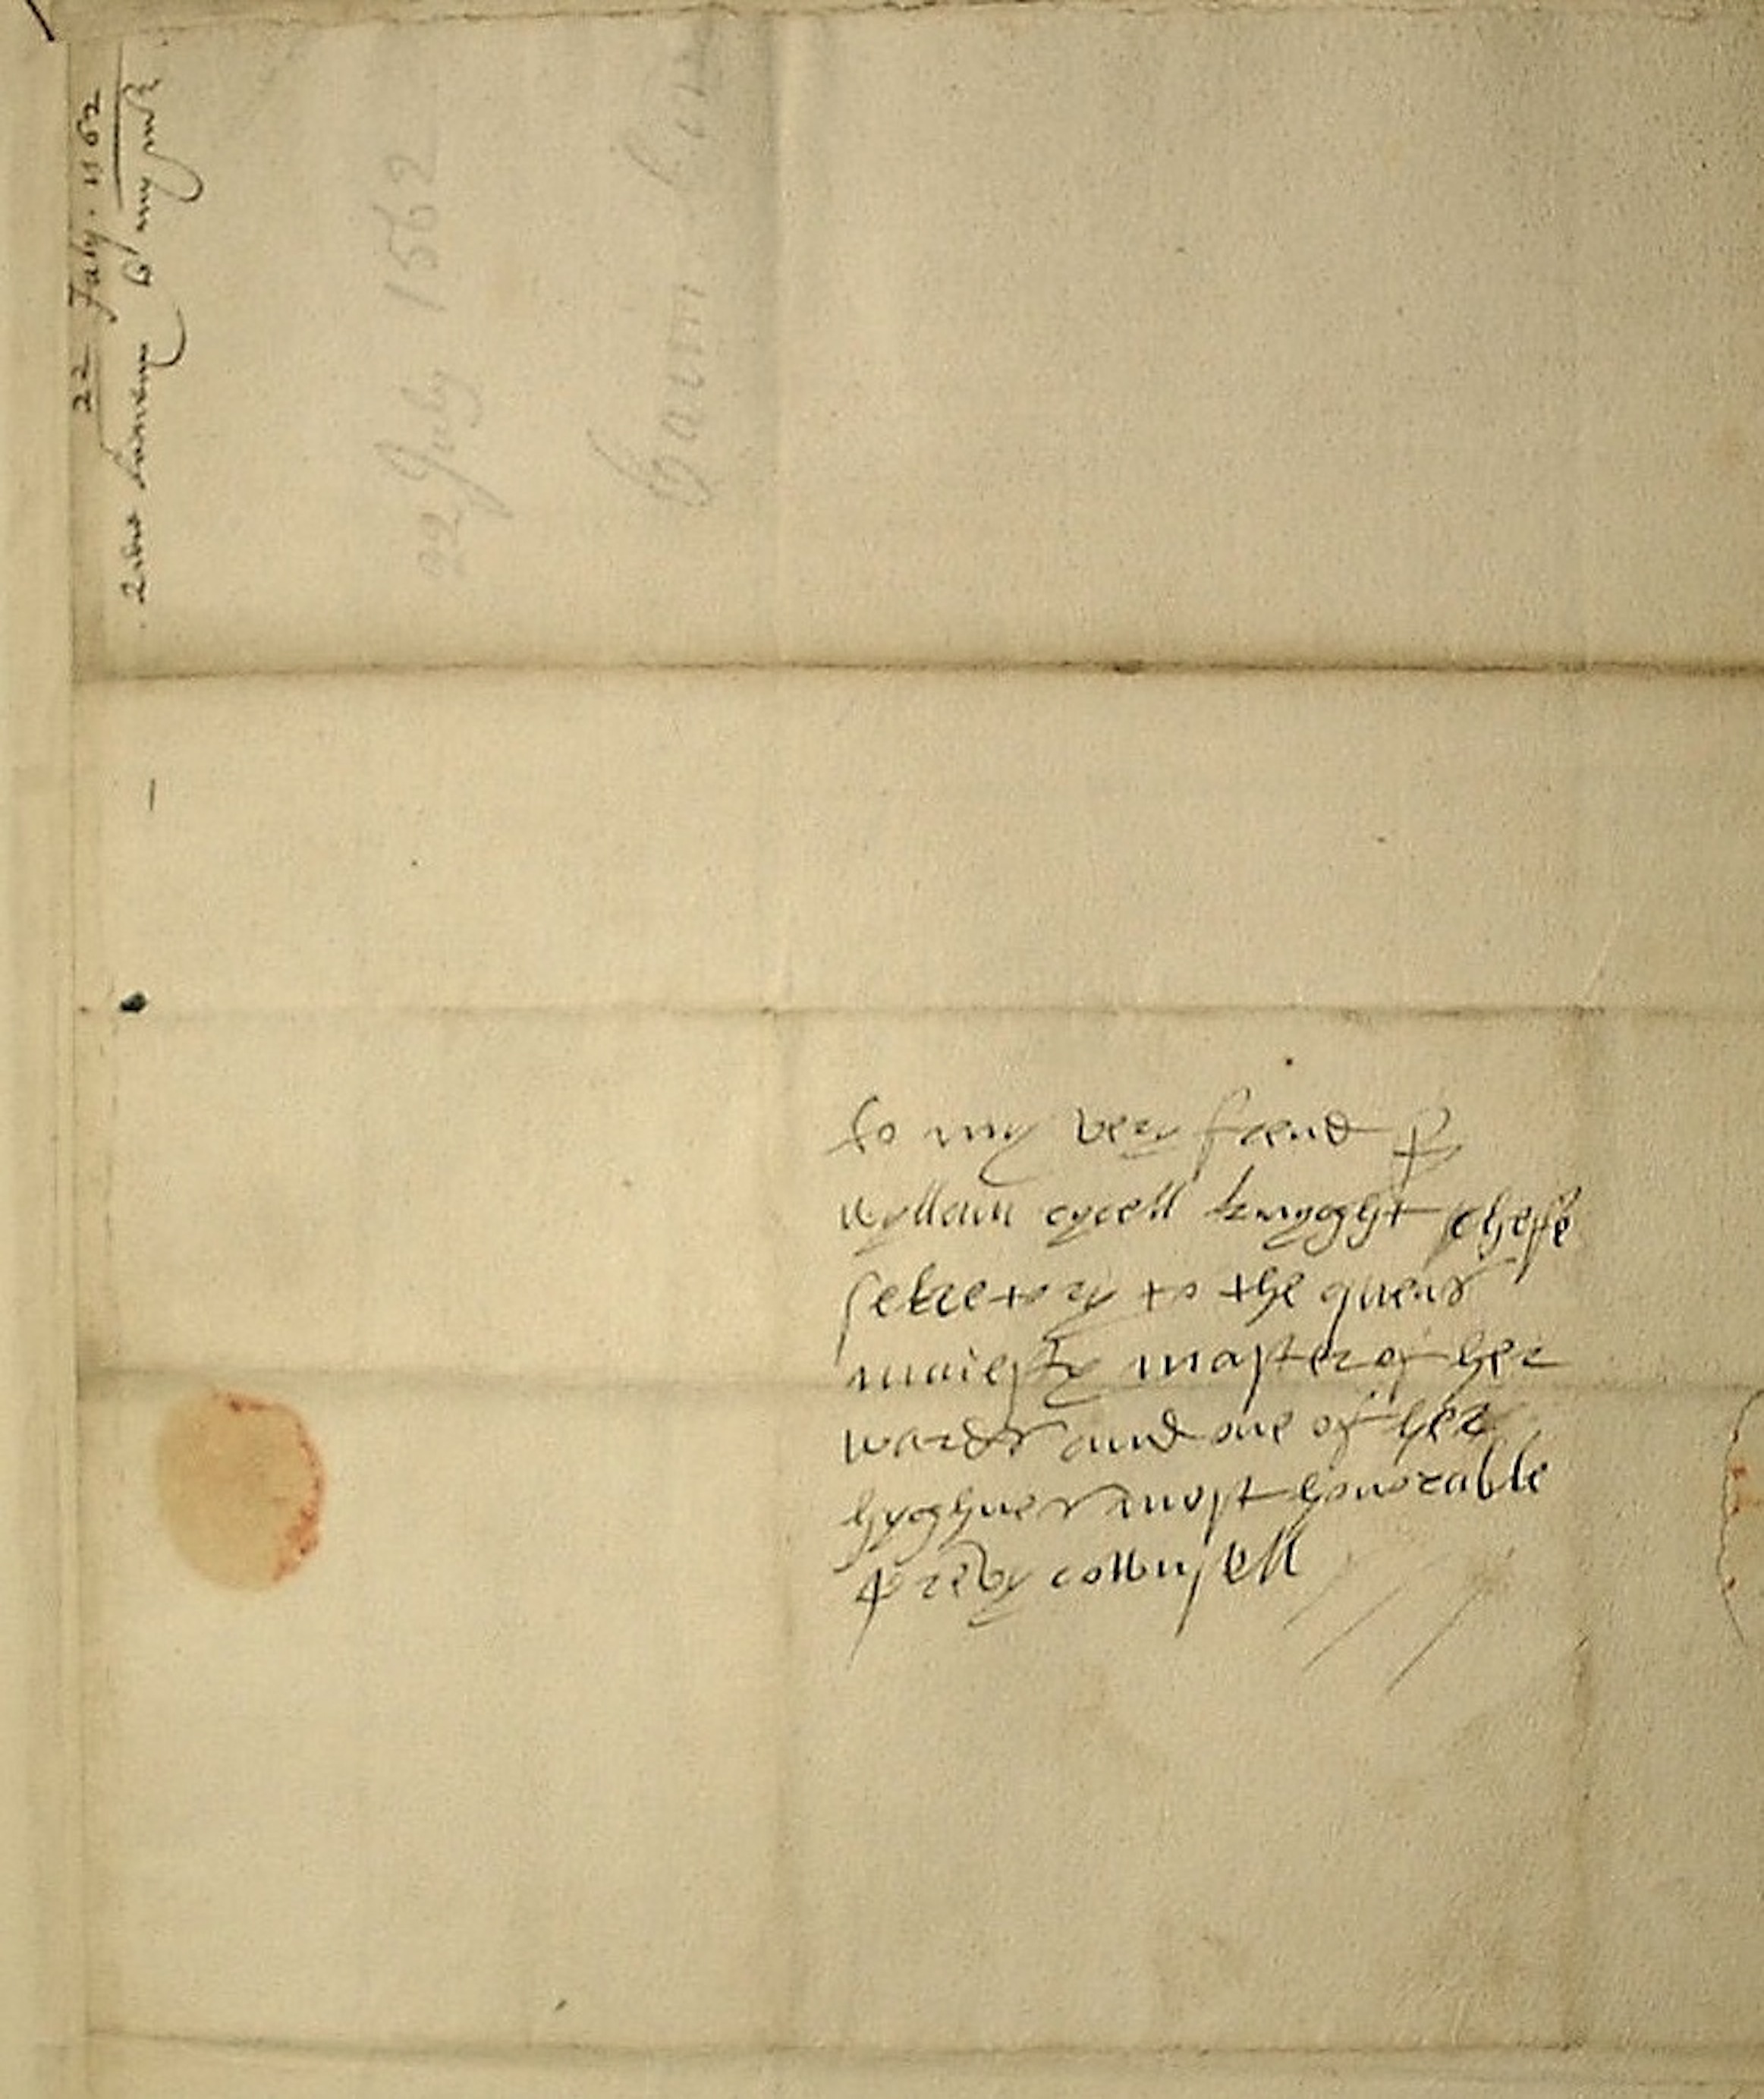 22 July. 1562
to my
22 July 1562
to my very frend Sr
wyllam cycell knyght cheffe
sekretory to the quens
maiesty master of her
wards and one of her
hyghnes most honorable
prevy cownsell